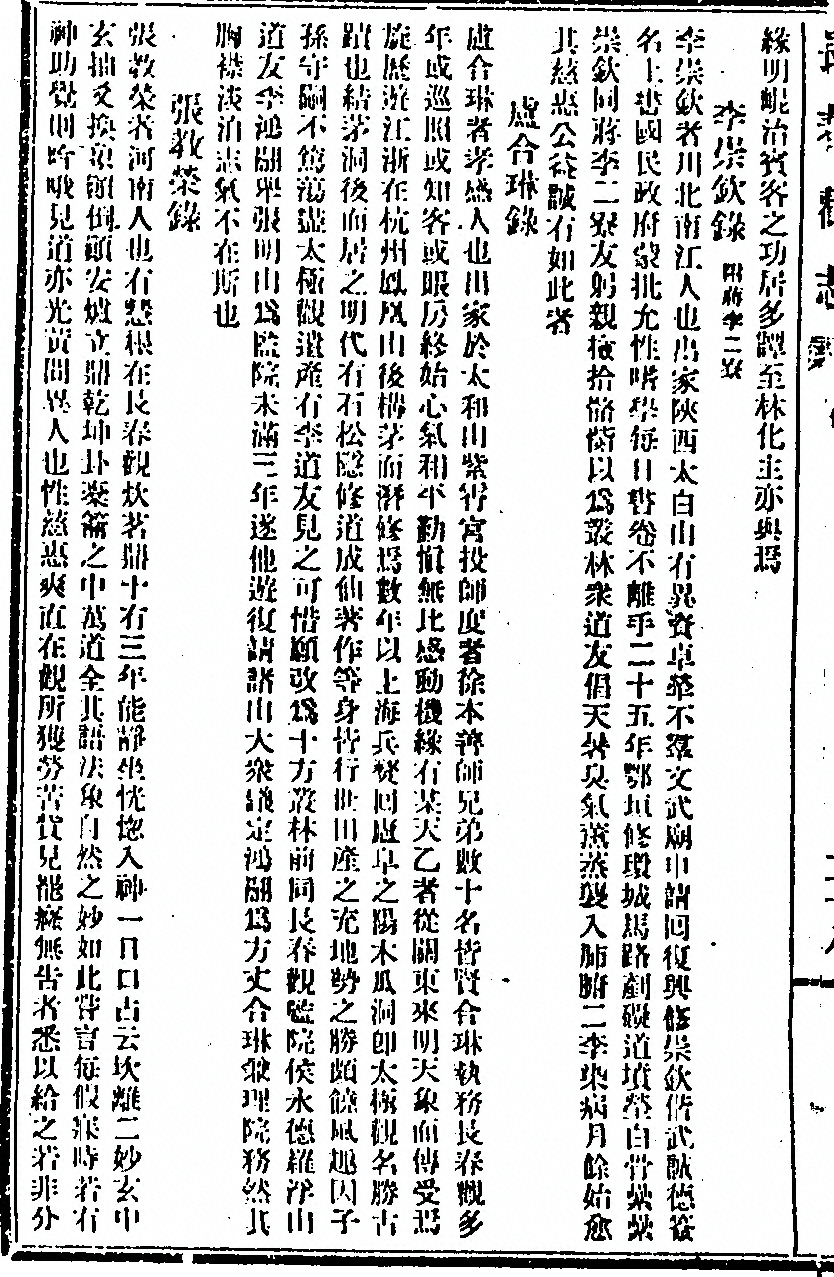 緣明鯤治賓客之功居多譚至林化主亦與焉
李崇欽錄 附蔣李二眾
李崇欽者川北南江人也出家陝西太白山有異資卓犖不羣文武廟申請回復興修崇欽偕武猷德簽
名上書國民政府蒙批允性嗜學每日書卷不離手二十五年鄂垣修環城馬路剷礙道墳塋白骨纍纍
崇欽同蔣李二眾友躬親檢拾骼骴以爲叢林眾道友倡天暑臭氣薰蒸襲入肺腑二李染病月餘始愈
其慈悲公益誠有如此者
盧合琳錄
盧合琳者孝感人也出家於太和山紫霄宮投師度者徐本善師兄弟數十名皆賢合琳執務長春觀多
年或巡照或知客或賬房終始心氣和平勤慎無比感動機緣有某天乙者從關東來明天象而傳受焉
旋歷遊江浙在杭州鳳凰山後構茅而潛修焉數年以上海兵燹回盧阜之陽木瓜洞卽太極觀名勝古
蹟也結茅洞後而居之明代有石松隱修道成仙著作等身皆行世田產之充地勢之勝頗饒風趣因子
孫守嗣不篤蕩盡太極觀遺產有李道友見之可惜願改爲十方叢林前同長春觀監院侯永德羅浮山
道友李鴻關舉張明山爲監院未滿三年遂他遊復請諸山大衆議定鴻關爲方丈合琳兼理院務然其
胸襟淡泊志氣不在斯也
張教榮錄
張教榮者河南人也有慧根在長春觀炊著鼎十有三年能靜坐恍惚入神一日口占云坎離二妙玄中
玄抽爻換象顛倒顛安爐立鼎乾坤卦橐籥之中萬道全其語法象自然之妙如此嘗言每假寐時若有
神助覺則吟哦見道亦光黃間異人也性慈悲爽直在觀所獲勞苦貲見罷癃無告者悉以給之若非分